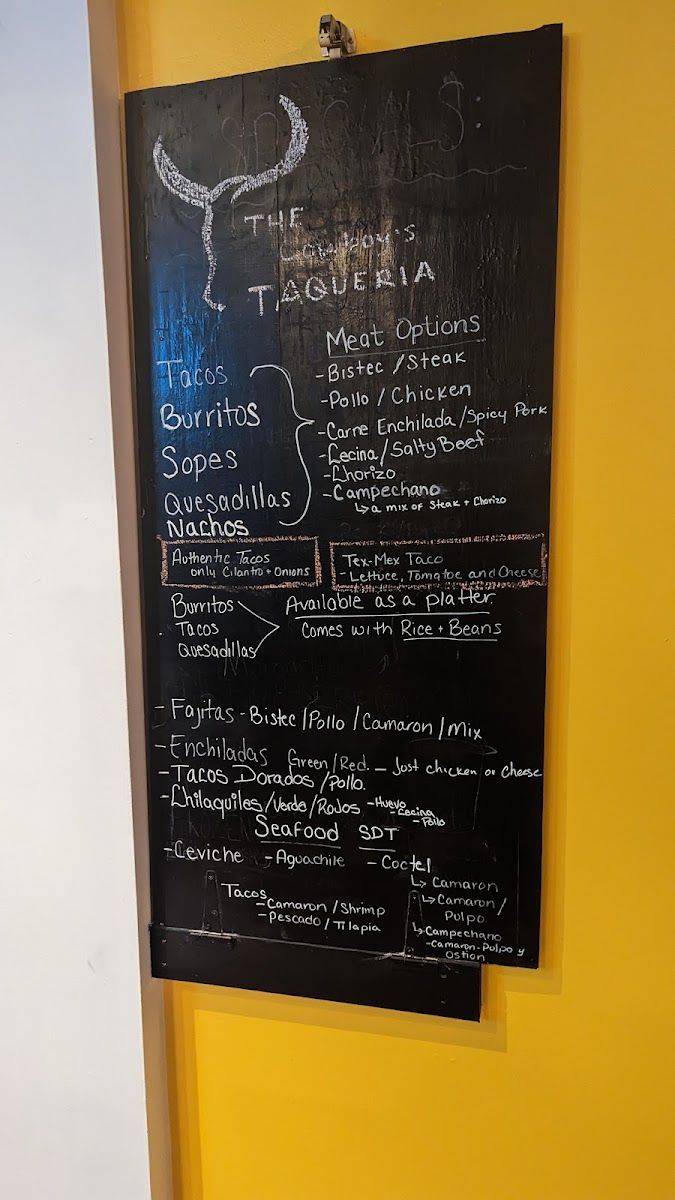 SPECIALS:
THE
Cowboy's
TAQUERIA
Meat Options
Tacos
Burritos
Sopes
Quesadillas
Nachos
-Bistec / Steak
-Pollo / Chicken
-Carne Enchilada/Spicy Pork
-Cecina/Salty Beef
-Chorizo
-Campechano
↳ a mix of Steak + Chorizo
Authentic Tacos
only Cilantro + Onions
Tex-Mex Taco
- Lettuce, Tomatoe and Cheese
Burritos
Tacos
Quesadillas
Available as a platter.
Comes with Rice + Beans
- Fajitas - Bistec /Pollo /Camaron / Mix
- Enchiladas Green/Red. - Just chicken or cheese
- Tacos Dorados /Pollo.
- Chilaquiles/Verde/Rojos -Huevo
-Cecina
-Pollo
Seafood SDT
-Ceviche -Aguachile -Coctel
↳ Camaron
↳ Camaron/
Pulpo
↳ Campechano
-Camaron-Pulpo y
Ostion
Tacos
-Camaron /Shrimp
-Pescado / Tilapia